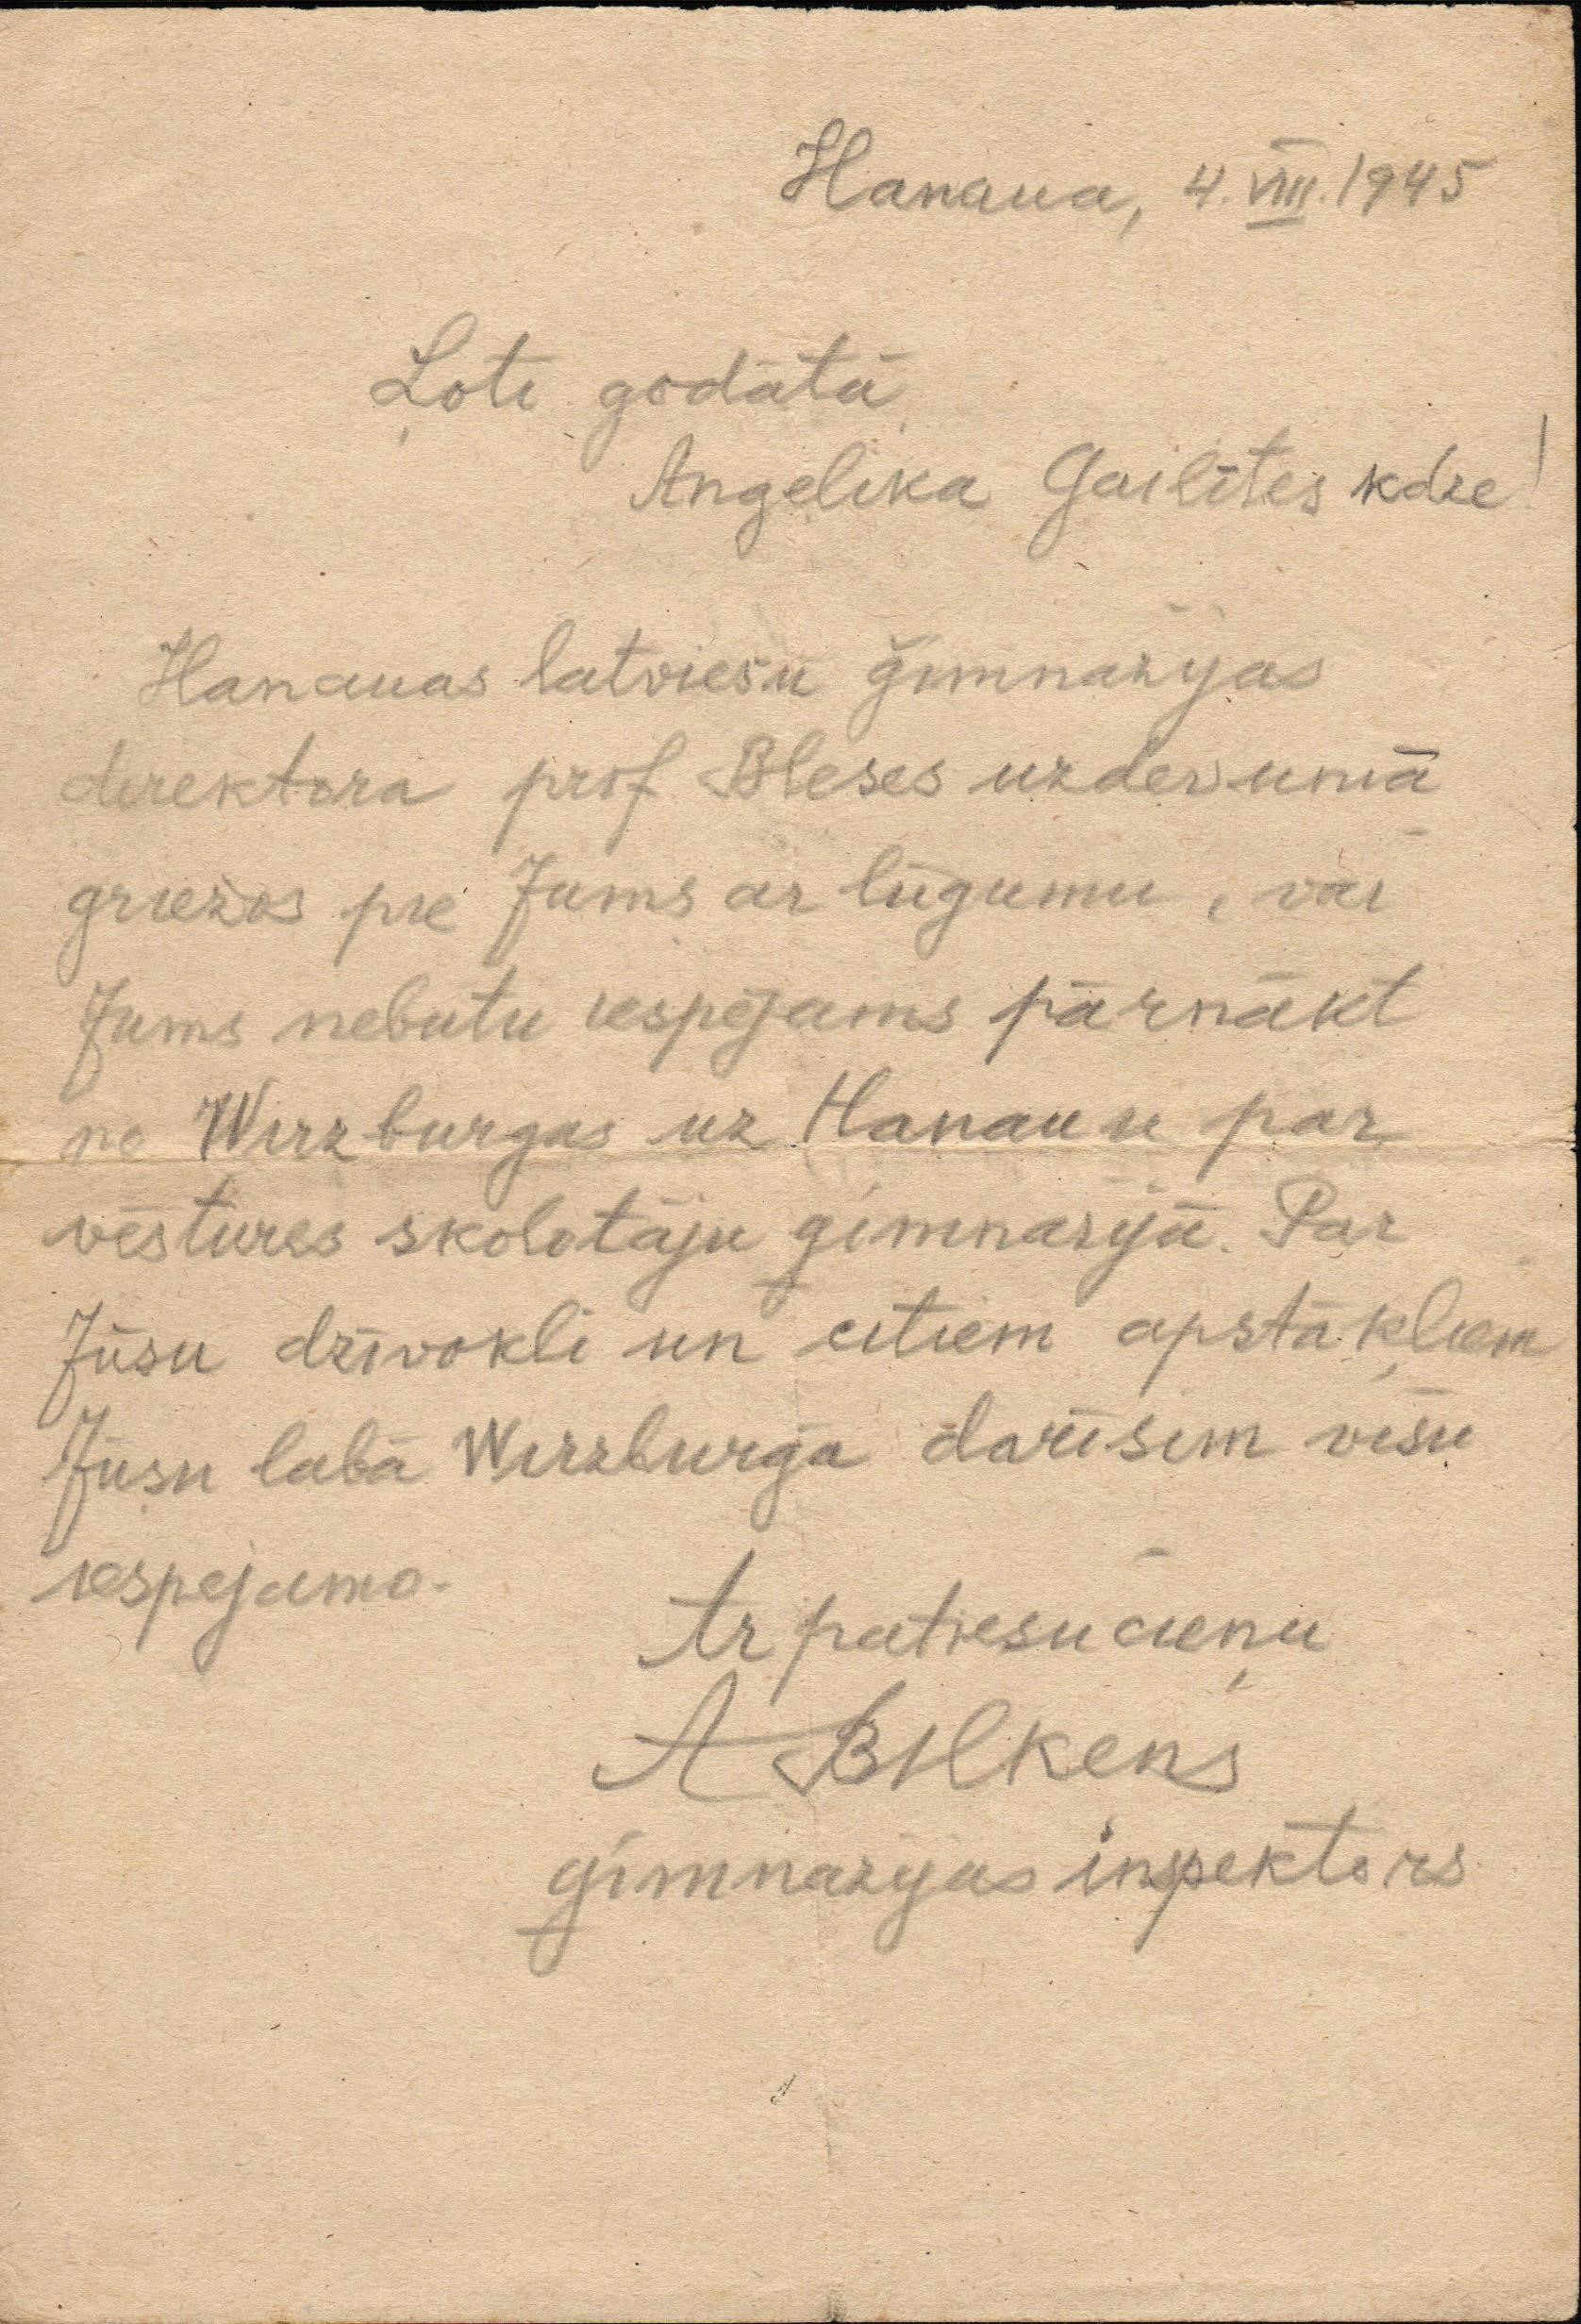 Hanaua, 4. VIII. 1945
Ļoti godātā
Angelika Gailītes kdze!
Hanauas latviešu ģimnazijas
direktora prof Bleses uzdevumā
griežos pie Jums ar lūgumu, vai
Jums nebutu iespējams pārnākt
no Wirzburgas uz Hanauu par
vēstures skolotāju ģimnazijā. Par
Jūsu dzīvokli un citiem apstākļiem
Jūsu labā Wirzburgā darīsim visu
iespejamo.
Ar patiesu cieņu
A Bilkens
ģimnazijas inspektors